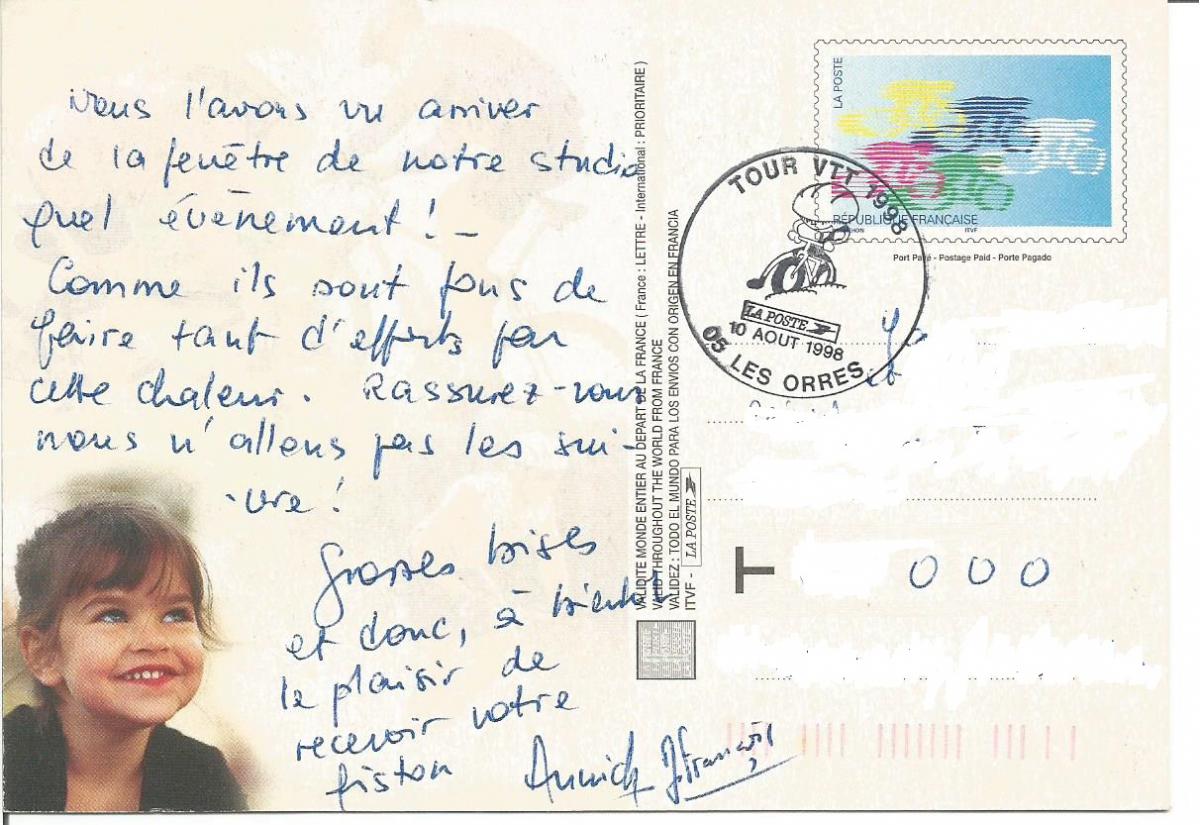 Nous l'avons vu arriver
de la fenêtre de notre studio
quel évènement ! -
Comme ils sont fous de
faire tant d'efforts par
cette chaleur. Rassurez-vous
nous n'allons pas les sui-
-vre !
Grosses bises
et donc, à bientôt
le plaisir de
recevoir votre
fiston
Annick J. François
VALIDITE MONDE ENTIER AU DEPART DE LA FRANCE ( France : LETTRE - International : PRIORITAIRE )
VALID THROUGHOUT THE WORLD FROM FRANCE
VALIDEZ : TODO EL MUNDO PARA LOS ENVIOS CON ORIGEN EN FRANCIA
ITVF - LA POSTE
LA POSTE
RÉPUBLIQUE FRANÇAISE
ITVF
Port Payé - Postage Paid - Porte Pagado
TOUR VTT 1998
LA POSTE
10 AOUT 1998
05 LES ORRES
et
T
000